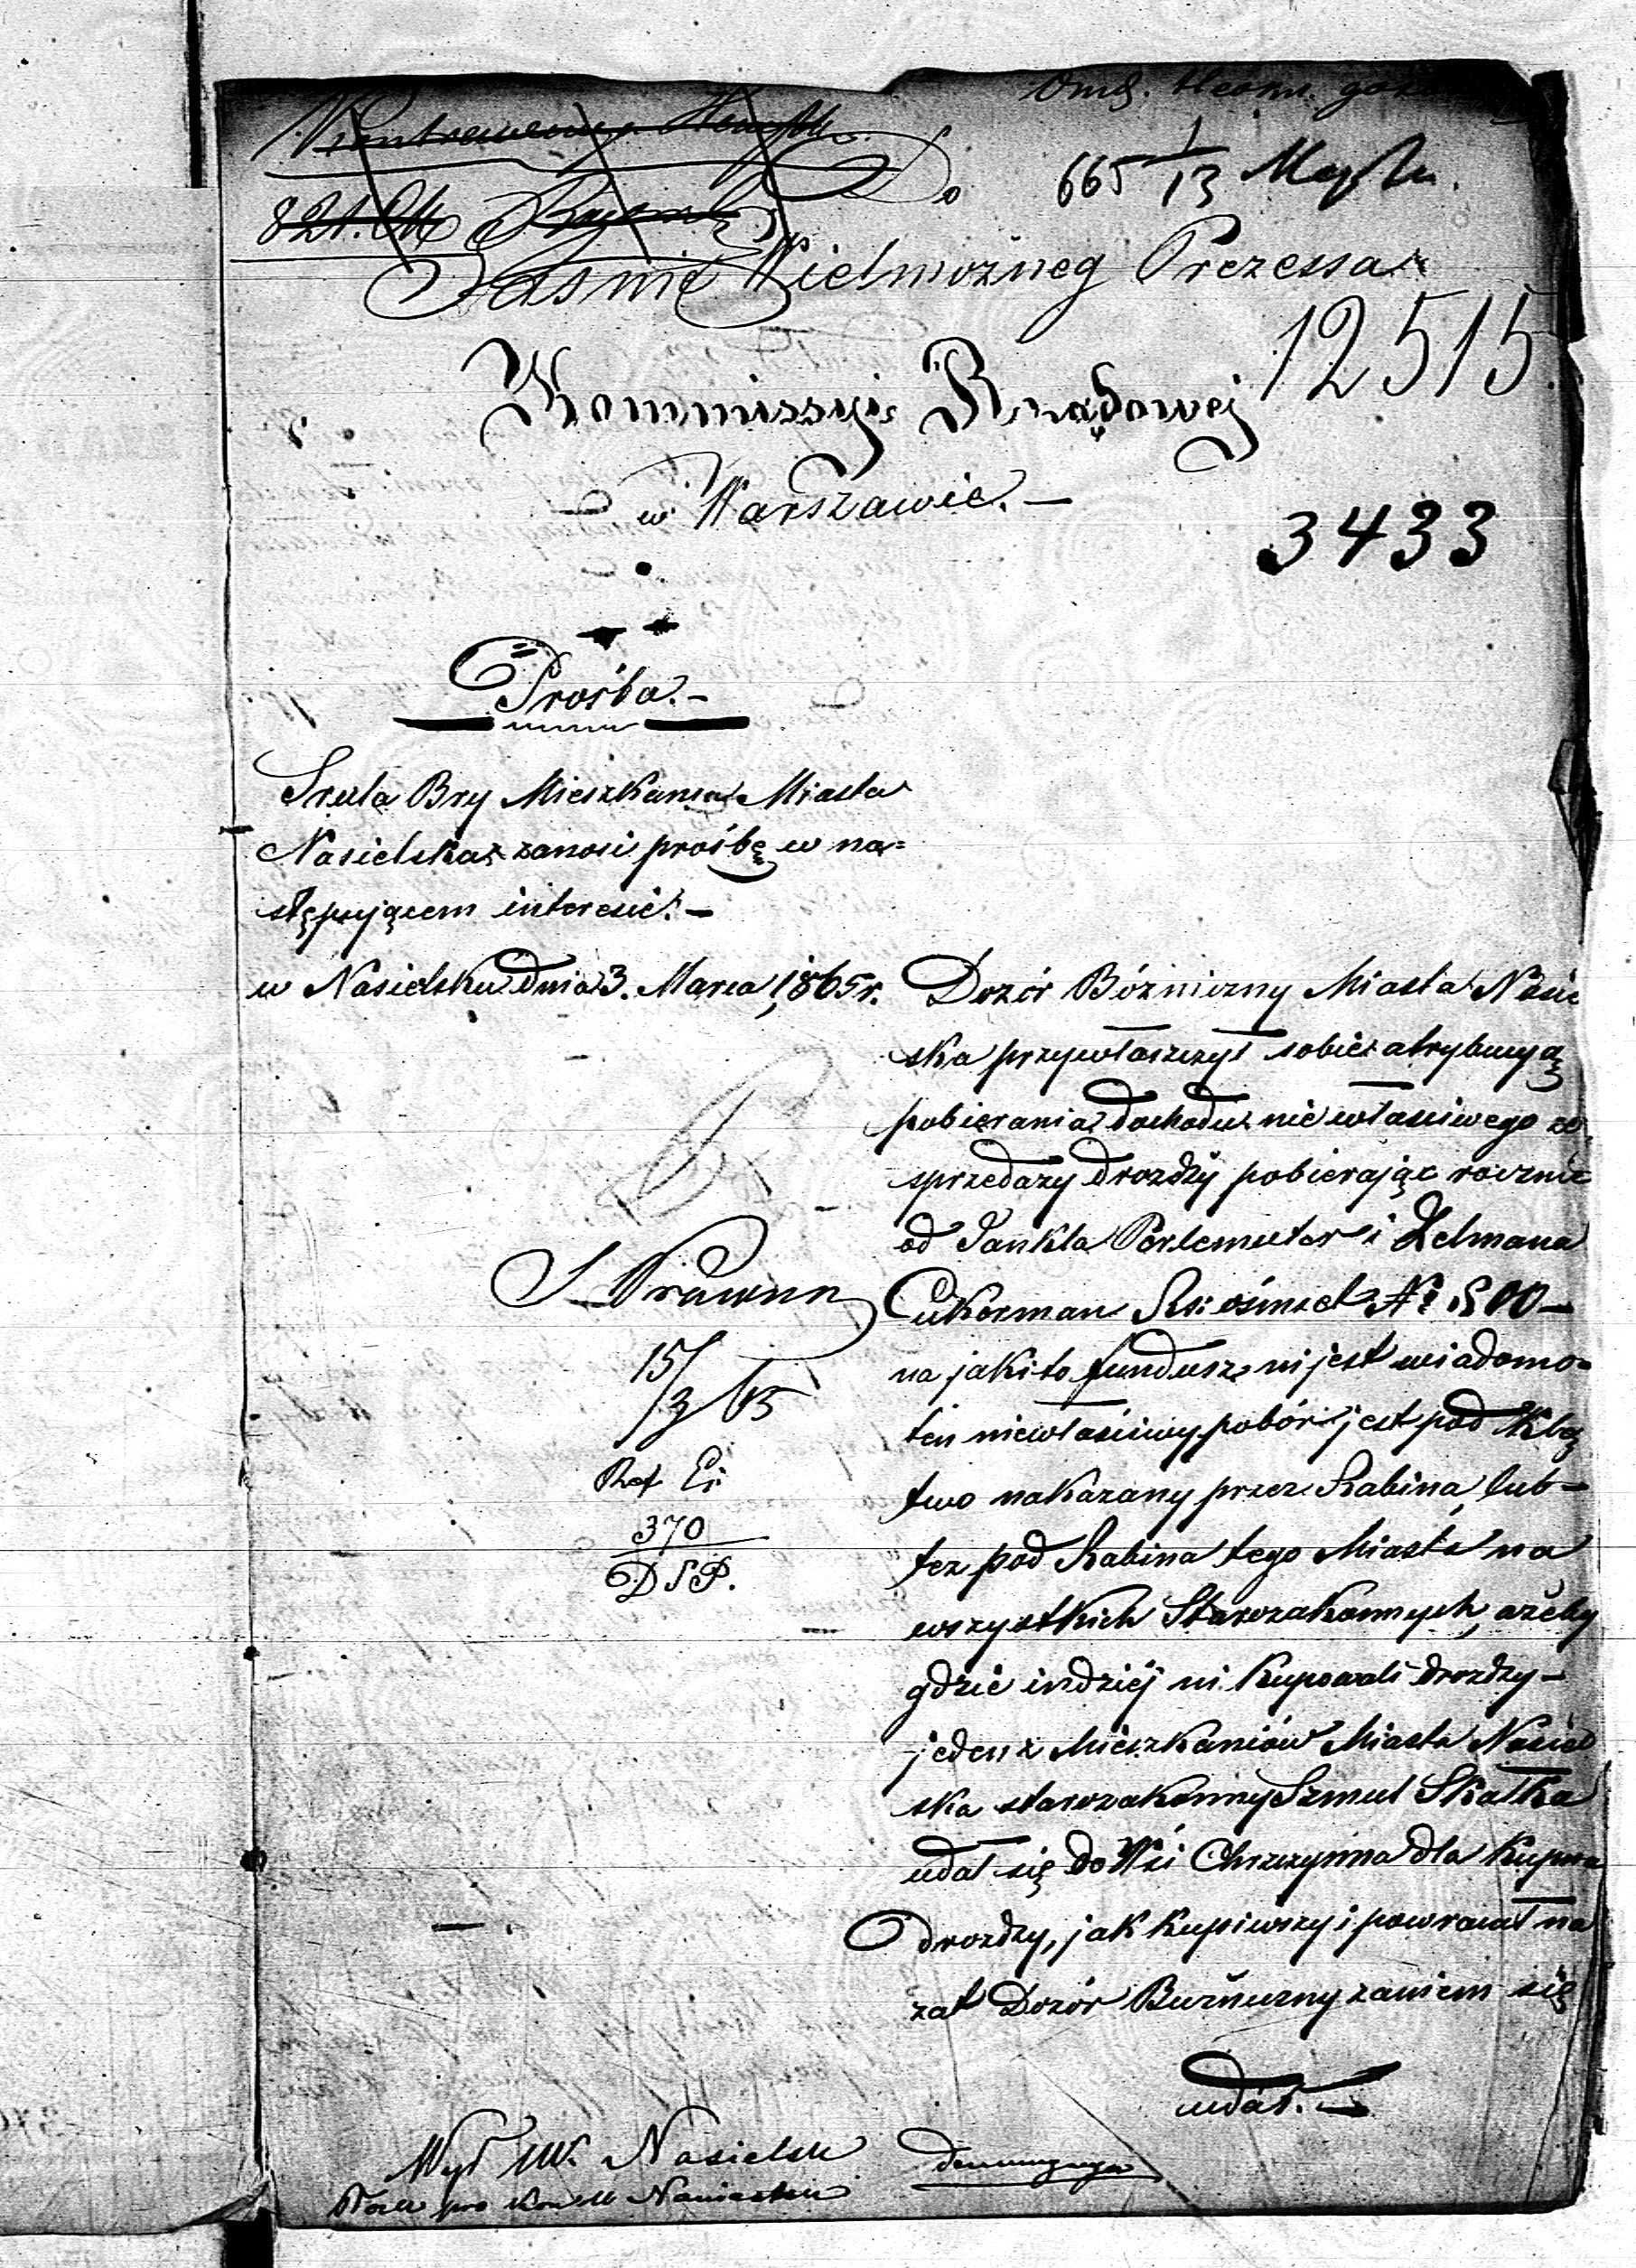 Do
665 1/13
Jaśnie Wielmożneg Prezessa
12515
Kommissyi Rządowej
w Warszawie. —
3433
Prośba. —
Srula Bry Mieszkańca Miasta
Nasielska zanosi prośbę w na=
stępującem interesie. —
w Nasielsku dnia 3. Marca 1865 r.
Dozór Bóżniczny Miasta Nasiel
ska przywłaszczył sobie atrybucyą
pobierania dochodu nie własciwego ze
sprzedaży drożdży pobierając rocznie
od Jankla Perlemuter i Zelmana
Cukorman Rsr. ośmset № 800 —
na jaki to fundusz ni jest wiadomo=
ten niewłaściwy pobór jest pod Klą
two nakazany przez Rabina, lub —
też pod Rabina tego Miasta na
wszystkich Starozakonnych, ażeby
gdzie indziéj ni kupowali drożdży —
jeden z Mieszkańców Miasta Nasiel
ska starozakonny Szmul Skałka
udał się do Wsi Chrzczynna dla kupna
drożdży, jak kupiwszy i powracał na
zat Dozór Bużniczny zaniem się
udał. —
15/3 65
Ref
370
D S P.
Nasielsk